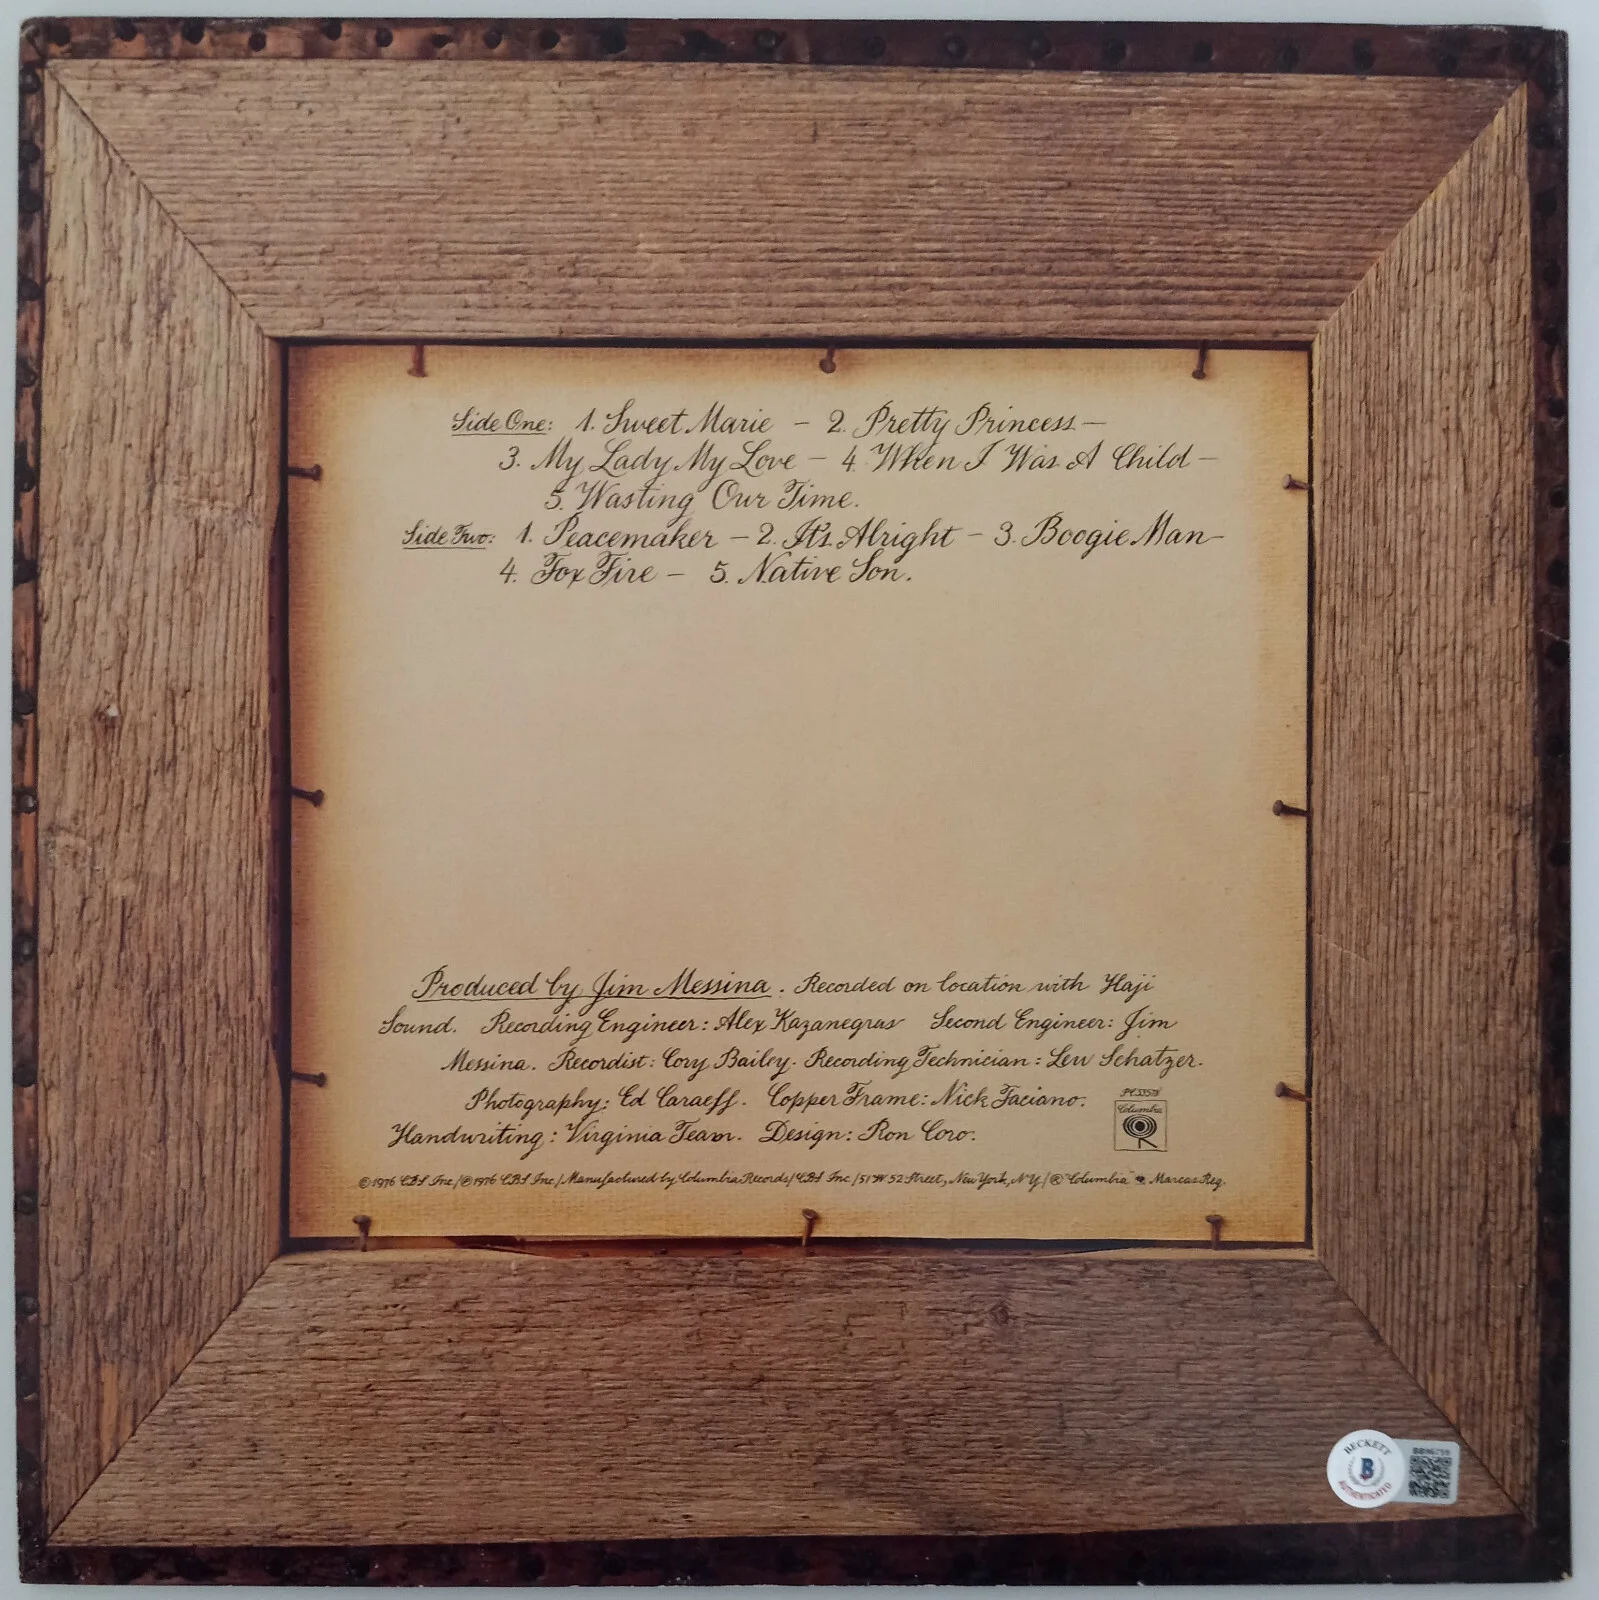 Side One: 1. Sweet Marie – 2. Pretty Princess –
3. My Lady, My Love – 4. When I Was A Child –
5. Wasting Our Time.
Side Two: 1. Peacemaker – 2. It's Alright – 3. Boogie Man –
4. Fox Fire – 5. Native Son.
Produced by Jim Messina. Recorded on location with Haji
Sound. Recording Engineer: Alex Kazanegras Second Engineer: Jim
Messina. Recordist: Cory Bailey. Recording Technician: Lew Schatzer.
Photography: Ed Caraeff. Copper Frame: Nick Faciano.
Handwriting: Virginia Team. Design: Ron Coro.
PC 33578
Columbia
© 1976 CBS Inc./℗ 1976 CBS Inc./Manufactured by Columbia Records/CBS Inc./51 W 52 Street, New York, NY/® "Columbia" Marcas Reg.
BECKETT
B
AUTHENTICATED